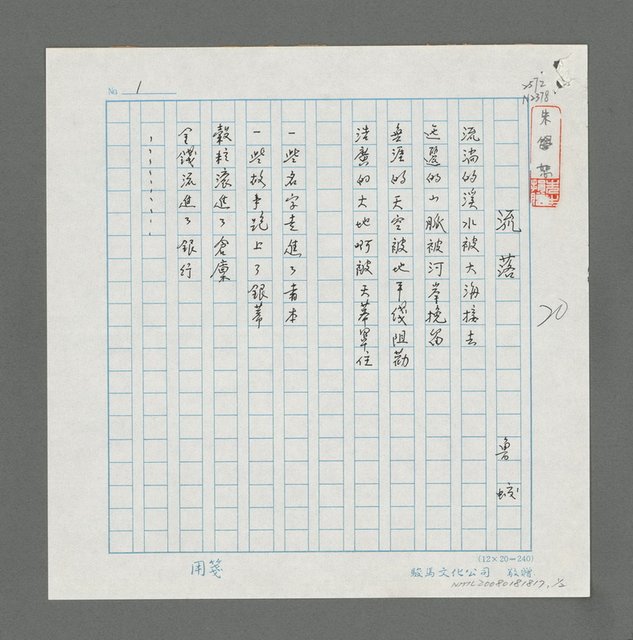 No 1
流落
魯蛟
流淌的溪水被大海接去
迤邐的山脈被河岸挽留
無涯的天空被地平線阻勸
浩廣的大地啊被天幕罩住
一些名字走進了書本
一些故事跑上了銀幕
穀粒滾進了倉廩
金錢流進了銀行
，，，，，，，
20
(12×20=240)
用箋
駿馬文化公司 敬贈
NMTL20080181817, 1/2